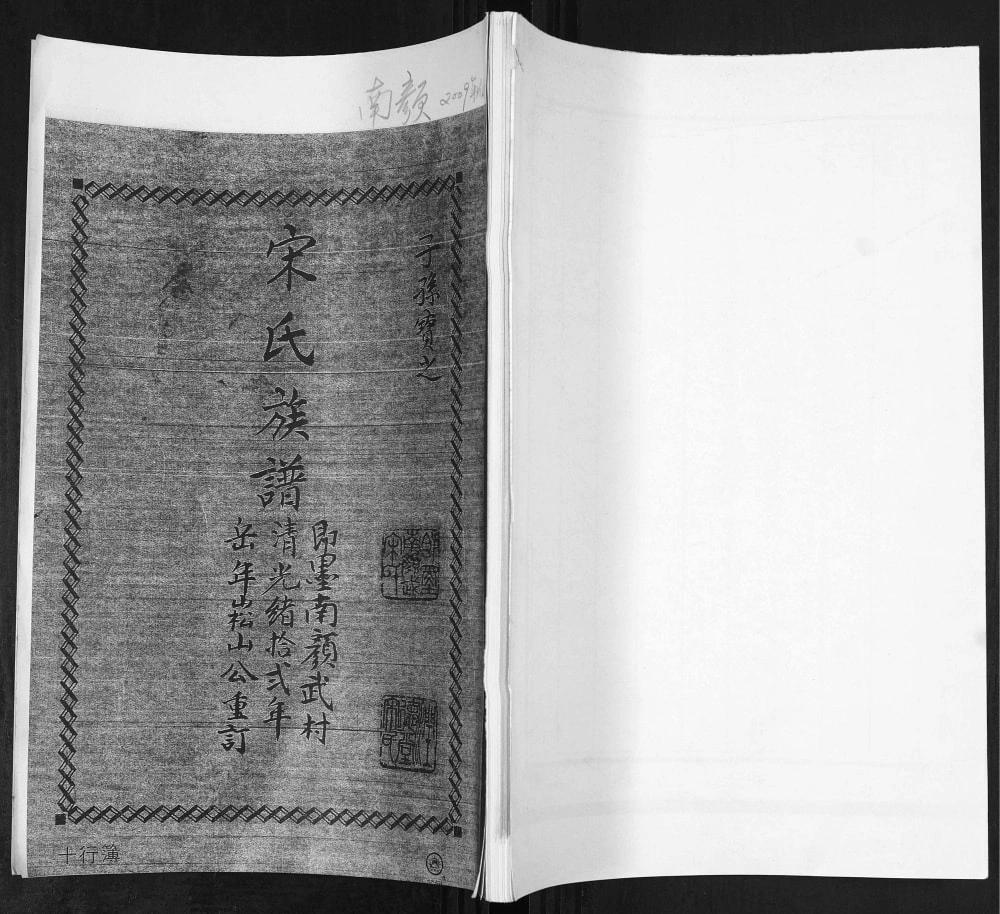 南颜 2009年
子孫寶之
宋氏族譜
即墨南顔武村
清光緒拾弍年
岳年崧山公重訂
十行簿